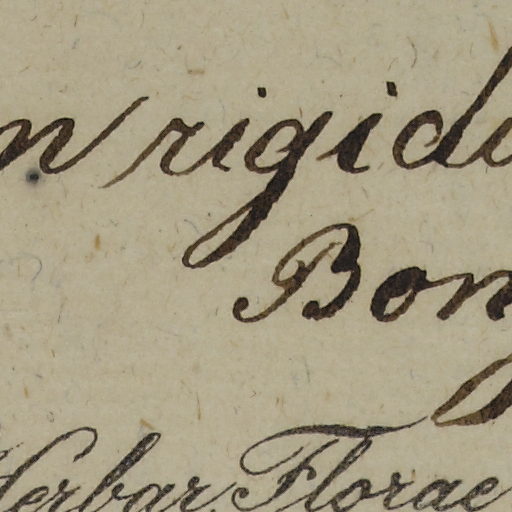 n rigidu
Bong
Herbar. Florae